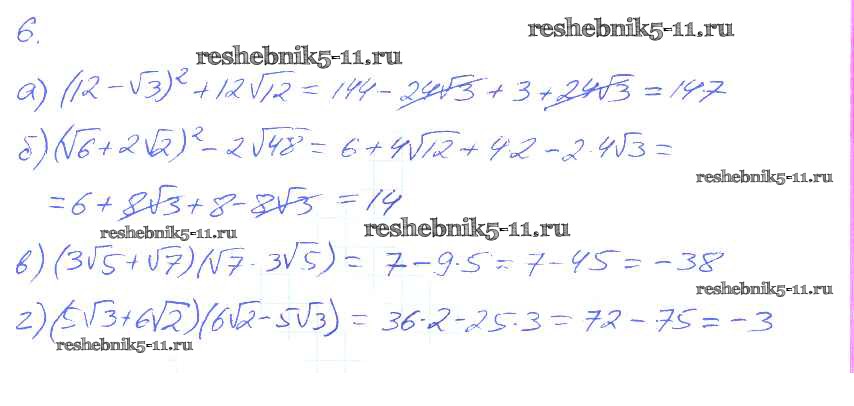 6.
reshebnik5-11.ru
reshebnik5-11.ru
а) (12 - √3)² + 12√12 = 144 - 24√3 + 3 + 24√3 = 147
б) (√6 + 2√2)² - 2√48 = 6 + 4√12 + 4·2 - 2·4√3 =
reshebnik5-11.ru
= 6 + 8√3 + 8 - 8√3 = 14
reshebnik5-11.ru
reshebnik5-11.ru
в) (3√5 + √7)(√7 · 3√5) = 7 - 9·5 = 7 - 45 = -38
reshebnik5-11.ru
г) (5√3 + 6√2)(6√2 - 5√3) = 36·2 - 25·3 = 72 - 75 = -3
reshebnik5-11.ru